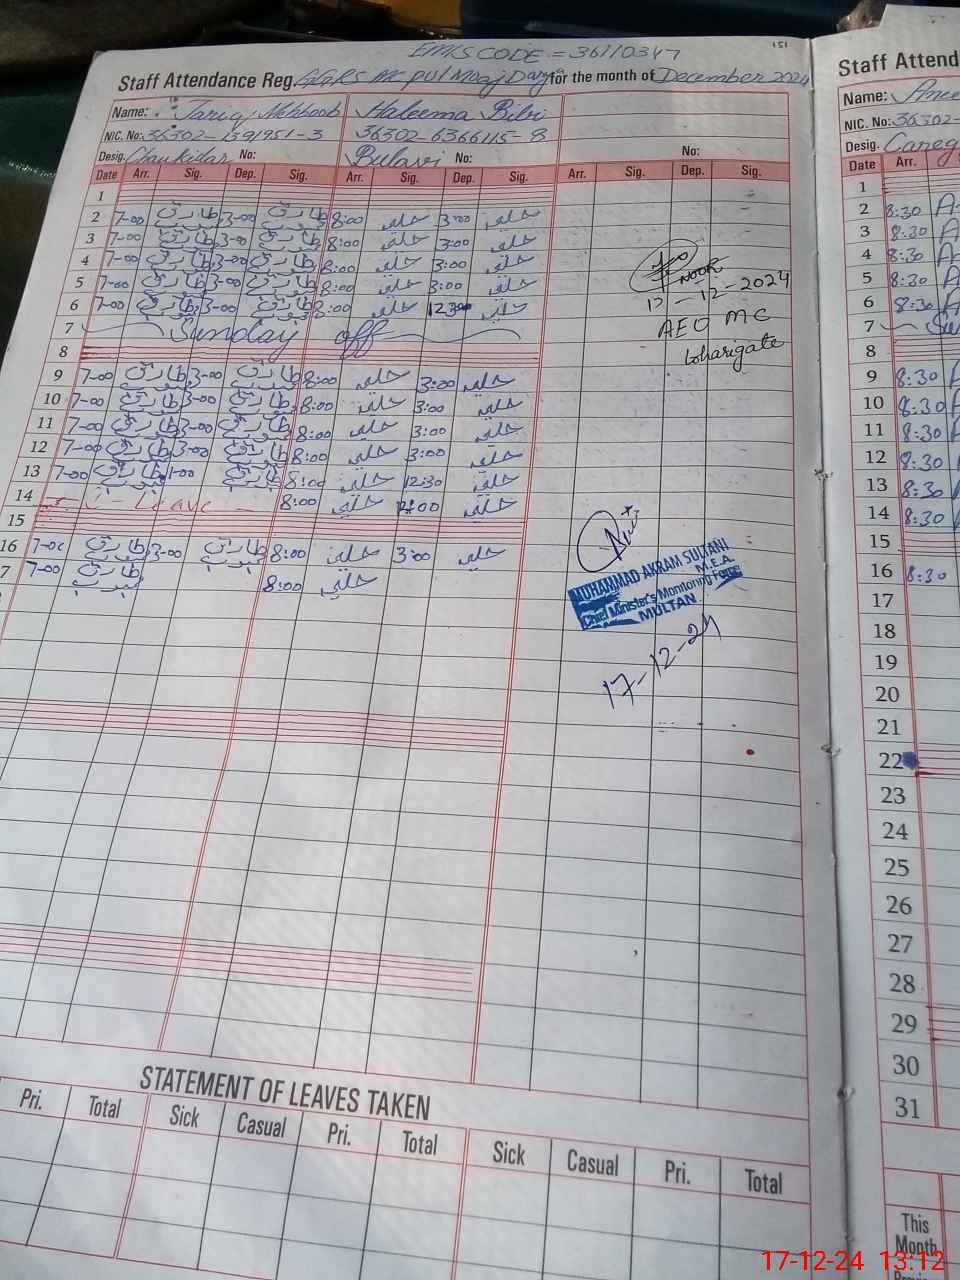 EMIS CODE = 36110347
151
Staff Attendance Reg. GGPS MC pul Mouj Darya for the month of December 2024
Name: Tariq Mehboob Haleema Bibi
NIC. No: 36302-1591951-3 36302-6366115-8
Desig. Chaukidar No: Bulavi No: No:
Date Arr. Sig. Dep. Sig. Arr. Sig. Dep. Sig. Arr. Sig. Dep. Sig.
1
2 7-00 طارق 3-00 طارق 8:00 حلیمہ 3:00 حلیمہ
3 7-00 طارق 3-00 طارق 8:00 حلیمہ 3:00 حلیمہ
4 7-00 طارق 3-00 طارق 8:00 حلیمہ 3:00 حلیمہ
5 7-00 طارق 3-00 طارق 8:00 حلیمہ 3:00 حلیمہ
6 7-00 طارق 3-00 طارق 8:00 حلیمہ 12:30 حلیمہ
7 Sunday off
8
9 7-00 طارق 3-00 طارق 8:00 حلیمہ 3:00 حلیمہ
10 7-00 طارق 3-00 طارق 8:00 حلیمہ 3:00 حلیمہ
11 7-00 طارق 3-00 طارق 8:00 حلیمہ 3:00 حلیمہ
12 7-00 طارق 3-00 طارق 8:00 حلیمہ 3:00 حلیمہ
13 7-00 طارق 1-00 طارق 8:00 حلیمہ 12:30 حلیمہ
14 Leave 8:00 حلیمہ 12:00 حلیمہ
15
16 7-00 طارق 3-00 طارق 8:00 حلیمہ 3:00 حلیمہ
7 7-00 طارق 8:00 حلیمہ
NOOR
17-12-2024
AEO MC
Loharigate
MUHAMMAD AKRAM SULTANI
M.E.A.
Chief Minister's Monitoring Force
MULTAN
17-12-24
STATEMENT OF LEAVES TAKEN
Pri. Total Sick Casual Pri. Total Sick Casual Pri. Total
Staff Attend
Name:
NIC. No: 36302-
Desig.
Date Arr.
1
2 8:30
3 8:30
4 8:30
5 8:30
6 8:30
7
8
9 8:30
10 8:30
11 8:30
12 8:30
13 8:30
14 8:30
15
16 8:30
17
18
19
20
21
22
23
24
25
26
27
28
29
30
31
This
Month
17-12-24 13:12